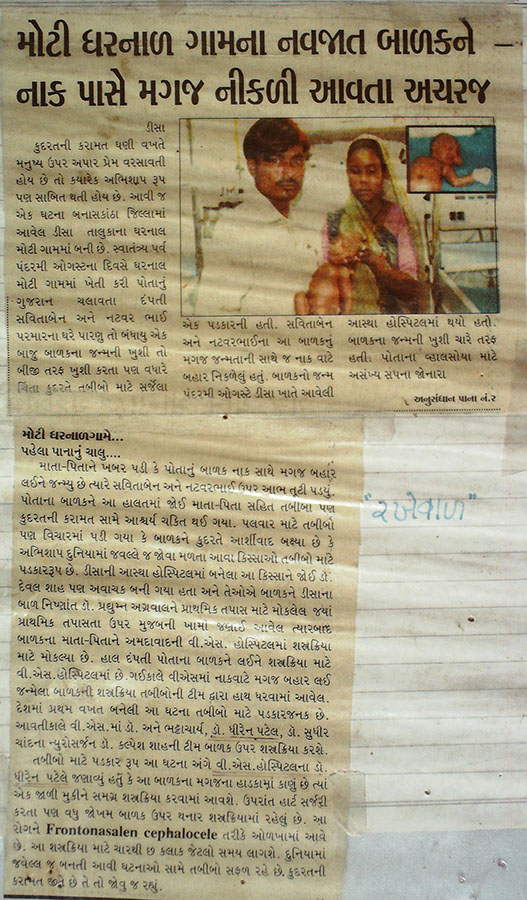 મોટી ધરનાળ ગામના નવજાત બાળકને –
નાક પાસે મગજ નીકળી આવતા અચરજ
ડીસા
કુદરતની કરામત ઘણી વખતે
મનુષ્ય ઉપર અપાર પ્રેમ વરસાવતી
હોય છે તો ક્યારેક અભિશાપ રૂપ
પણ સાબિત થતી હોય છે. આવી જ
એક ઘટના બનાસકાંઠા જિલ્લામાં
આવેલ ડીસા તાલુકાના ધરનાલ
મોટી ગામમાં બની છે. સ્વાતંત્ર્ય પર્વ
પંદરમી ઓગસ્ટના દિવસે ધરનાલ
મોટી ગામમાં ખેતી કરી પોતાનું
ગુજરાન ચલાવતા દંપતી
સવિતાબેન અને નટવર ભાઈ
પરમારના ઘરે પારણુ તો બંધાયુ એક
બાજુ બાળકના જન્મની ખુશી તો
બીજી તરફ ખુશી કરતા પણ વધારે
ચિંતા કુદરતે તબીબો માટે સર્જેલા
એક પડકારની હતી. સવિતાબેન
અને નટવરભાઈના આ બાળકનું
મગજ જન્મતાની સાથે જ નાક વાટે
બહાર નિકળેલું હતું. બાળકનો જન્મ
પંદરમી ઓગસ્ટે ડીસા ખાતે આવેલી
આસ્થા હોસ્પિટલમાં થયો હતો.
બાળકના જન્મની ખુશી ચારે તરફ
હતી. પોતાના વ્હાલસોયા માટે
અસંખ્ય સપના જોનારા
અનુસંધાન પાના નં.૨
મોટી ધરનાળગામે...
પહેલા પાનાનું ચાલુ....
માતા-પિતાને ખબર પડી કે પોતાનું બાળક નાક સાથે મગજ બહાર
લઈને જન્મ્યુ છે ત્યારે સવિતાબેન અને નટવરભાઈ ઉપર આભ તૂટી પડયું.
પોતાના બાળકને આ હાલતમાં જોઈ માતા-પિતા સહિત તબીબો પણ
કુદરતની કરામત સામે આશ્ચર્ય ચકિત થઈ ગયા. પલવાર માટે તબીબો
પણ વિચારમાં પડી ગયા કે બાળકને કુદરતે આર્શીવાદ બક્ષ્યા છે કે
અભિશાપ દુનિયામાં જવલ્લે જ જોવા મળતા આવા કિસ્સાઓ તબીબો માટે
પડકારરૂપ છે. ડીસાની આસ્થા હોસ્પિટલમાં બનેલા આ કિસ્સાને જોઈ ડો.
દેવલ શાહ પણ અવાચક બની ગયા હતા અને તેઓએ બાળકને ડીસાના
બાળ નિષ્ણાંત ડો. પ્રદ્યુમ્ન અગ્રવાલને પ્રાથમિક તપાસ માટે મોકલેલ જયાં
પ્રાથમિક તપાસતા ઉપર મુજબની ખામી જણાઈ આવેલ ત્યારબાદ
બાળકના માતા-પિતાને અમદાવાદની વી.એસ. હોસ્પિટલમાં શસ્ત્રક્રિયા
માટે મોકલ્યા છે. હાલ દંપતી પોતાના બાળકને લઈને શસ્ત્રક્રિયા માટે
વી.એસ.હોસ્પિટલમાં છે. ગઈકાલે વીએસમાં નાકવાટે મગજ બહાર લઈ
જન્મેલા બાળકની શસ્ત્રક્રિયા તબીબોની ટીમ દ્વારા હાથ ધરવામાં આવેલ.
દેશમાં પ્રથમ વખત બનેલી આ ઘટના તબીબો માટે પડકારજનક છે.
આવતીકાલે વી.એસ.માં ડો. અને ભટ્ટાચાર્ય, ડો. ધીરેન પટેલ, ડો. સુધીર
ચાંદના ન્યુરોસર્જન ડો. કલ્પેશ શાહની ટીમ બાળક ઉપર શસ્ત્રક્રિયા કરશે.
તબીબો માટે પડકાર રૂપ આ ઘટના અંગે વી.એસ.હોસ્પિટલના ડો.
ધીરેન પટેલે જણાવ્યું હતું કે આ બાળકના મગજના હાડકામાં કાણું છે ત્યાં
એક જાળી મુકીને સમગ્ર શસ્ત્રક્રિયા કરવામાં આવશે. ઉપરાંત હાર્ટ સર્જરી
કરતા પણ વધુ જોખમ બાળક ઉપર થનાર શસ્ત્રક્રિયામાં રહેલું છે. આ
રોગને Frontonasalen cephalocele તરીકે ઓળખામાં આવે
છે. આ શસ્ત્રક્રિયા માટે ચારથી છ કલાક જેટલો સમય લાગશે. દુનિયામાં
જવેલ્લ જ બનતી આવી ઘટનાઓ સામે તબીબો સફળ રહે છે. કુદરતની
કરામત જીતે છે તે તો જોવુ જ રહ્યું.
"રખેવાળ"